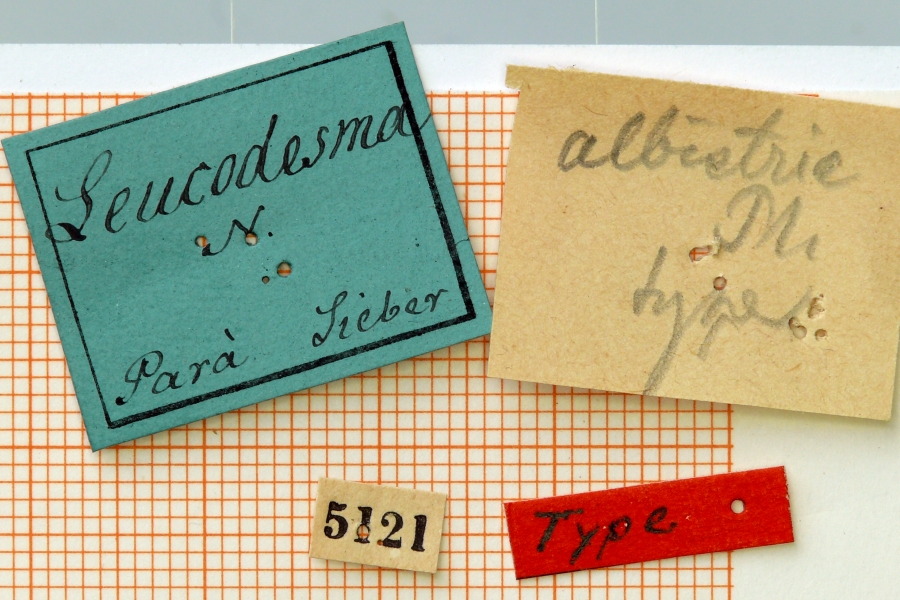 Leucodesma
N.
Parà Sieber
albistric
M.
type
5121
Type